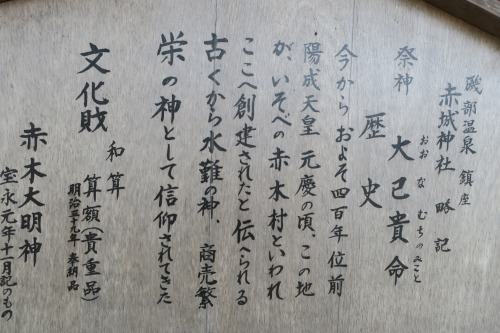 磯部温泉 鎮座
赤城神社 略記
祭神 大己貴命
おおなむちのみこと
歴史
今からおよそ四百年位前
陽成天皇 元慶の頃、この地
が、いそべの赤木村といわれ
ここへ創建されたと伝へられる
古くから水難の神、商売繁
栄の神として信仰されてきた
文化財
和算 算額(貴重品)
明治三十九年 奉納品
赤木大明神
宝永元年十一月記のもの